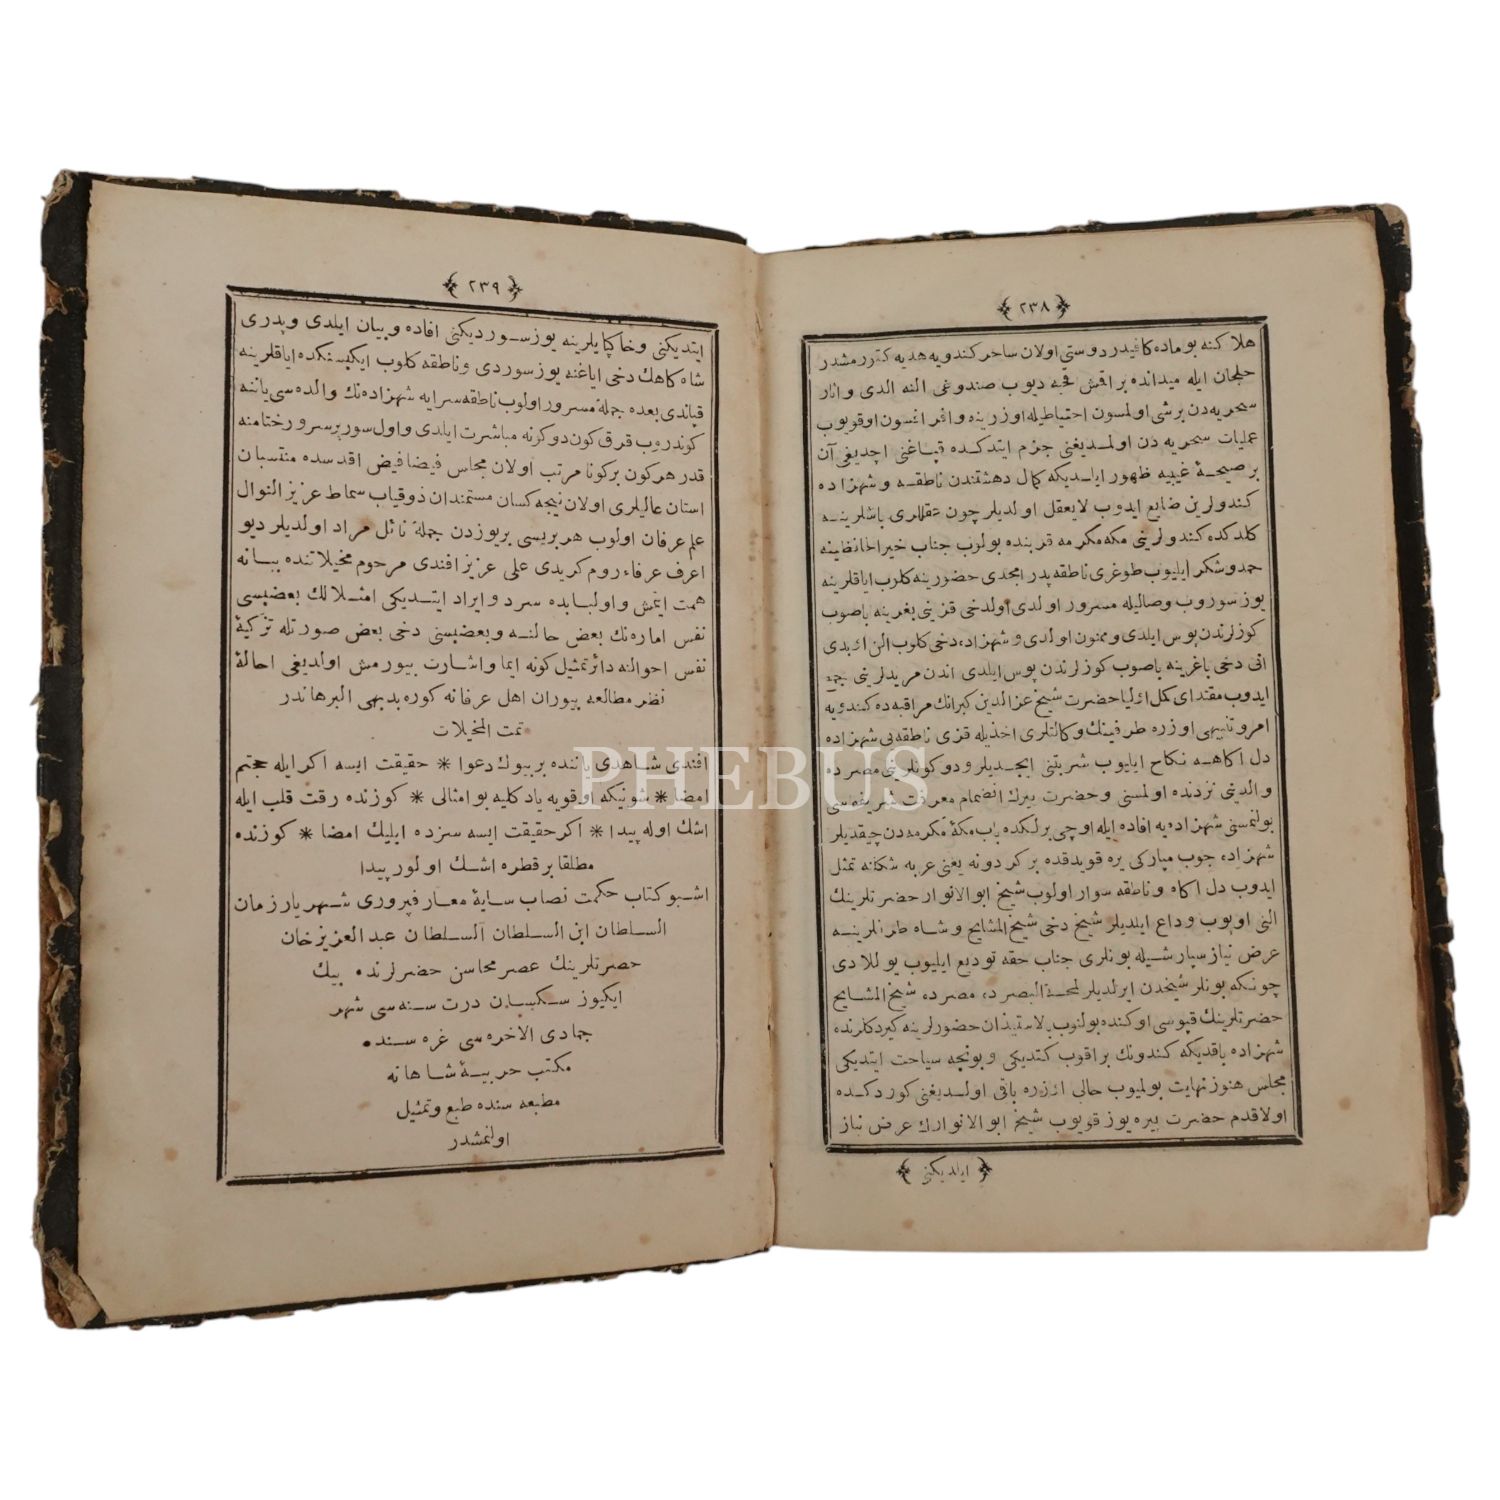 ﴿ ٢٣٨ ﴾
هلاكنه بو ماده كافيدر دوستى اولان ساحر كندويه هديه كتورمشدر
حلجان ايله ميدانده براقمش قجه ديوب صندوغى النه الدى و اثار
سحريه دن برشى اولمسون احتياطيله اوزرينه وافر افسون اوقويوب
عمليات سحريه دن اولمديغنى جزم ايتدكده قپاغنى اچديغى آن
بر صيحهٔ غيبيه ظهور ايلديكه كمال دهشتمدن ناطقه و شهزاده
كندولرين ضايع ايدوب لايعقل اولديلر چون عقللرى باشلرينه
كلدكده كندولرينى مكه مكرمه قربنده بولوب جناب خيرالحافظينه
حمد و شكر ايليوب طوغرى ناطقه پدر امجدى حضورينه كلوب اياقلرينه
يوز سوروب وصاليله مسرور اولدى اولدخى قزينى بغرينه باصوب
كوزلرندن پوس ايلدى و ممنون اولدى و شهزاده دخى كلوب الن اوپدى
انى دخى باغرينه باصوب كوزلرندن پوس ايلدى اندن مريدلرينى جمع
ايدوب مقتداى كمل اوليا حضرت شيخ عزالدين كبرانك مراقبه ده كندويه
امر و تنبيهى اوزره طرفينك وكالتلرى اخذيله قزى ناطقه يى شهزاده
دل اكاهه نكاح ايليوب شربتنى ايچديلر و دوكونلرينى مصرده
والدينى نزدنده اولمسنى و حضرت پيرك انضمام معرفت شريفه سى
بولنمسنى شهزاده يه افاده ايله اوچى برلكده باب مكهٔ مكرمه دن چيقديلر
شهزاده چوب مباركى يره قويدقده بر كردونه يعنى عربه شكلنه تمثل
ايدوب دل اكاه و ناطقه سوار اولوب شيخ ابوالانوار حضرتلرينك
النى اوپوب وداع ايلديلر شيخ دخى شيخ المشايخ و شاه طرفلرينه
عرض نياز سپارشيله بونلرى جناب حقه توديع ايليوب يوللادى
چونكه بونلر شيخدن ايرلديلر لمحة البصرده مصرده شيخ المشايخ
حضرتلرينك قپوسى اوكنده بولنوب بلااستيذان حضورلرينه كيردكلرنده
شهزاده باقديكه كندونك براقوب كتديكى و بونجه سياحت ايتديكى
مجلس هنوز نهايت بولميوب حالى اوزره باقى اولديغنى كوردكده
اولا قدم حضرت پيره يوز قويوب شيخ ابوالانوارك عرض نياز
﴿ ايلديكنى ﴾
﴿ ٢٣٩ ﴾
ايتديكنى و خاكپايلرينه يوز سورديكنى افاده و بيان ايلدى و پدرى
شاه كاهك دخى اياغنه يوز سوردى و ناطقه كلوب ايكيسنكده اياقلرينه
قپاندى بعده جملهٔ مسرور اولوب ناطقه سرايه شهزاده نك والده سى ياننه
كوندروب قرق كون دوكونه مباشرت ايلدى و اول سور پرسرور ختامنه
قدر هركون بركونا مرتب اولان مجلس فيضا فيض اقدسده منتسبان
استان عاليلرى اولان نيجه كسان مستمندان ذوقياب سماط عزيز النوال
علم عرفان اولوب هر بريسى بريوزدن جملهٔ نائل مراد اولديلر ديو
اعرف عرفاء روم كريدى على عزيز افندى مرحوم مخيلاتنده بيانه
همت ايتمش و اولبابده سرد و ايراد ايتديكى امثلالك بعضيسى
نفس اماره نك بعض حالنه و بعضيسى دخى بعض صورتله تزكيهٔ
نفس احوالنه دائر تمثيل كونه ايما و اشارت بيورمش اولديغى احالهٔ
نظر مطالعه بيوران اهل عرفانه كوره بديهى البرهاندر
تمت المخيلات
افندى شاهدى ياننده بر بيوك دعوا * حقيقت ايسه اكر ايله حجتم
امضا * شونيكه اوقويه ياد كليه بو امثالى * كوزنده رقت قلب ايله
اشك اوله پيدا * اكر حقيقت ايسه سزده ايليك امضا * كوزنده
مطلقا بر قطره اشك اولور پيدا
اشبو كتاب حكمت نصاب سايهٔ معارفپرورى شهريار زمان
السلطان ابن السلطان السلطان عبد العزيز خان
حضرتلرينك عصر محاسن حضرلرنده بيك
ايكيوز سكسان درت سنه سى شهر
جمادى الاخره سى غره سنده
مكتب حربيهٔ شاهانه
مطبعه سنده طبع و تمثيل
اولنمشدر
PHEBUS